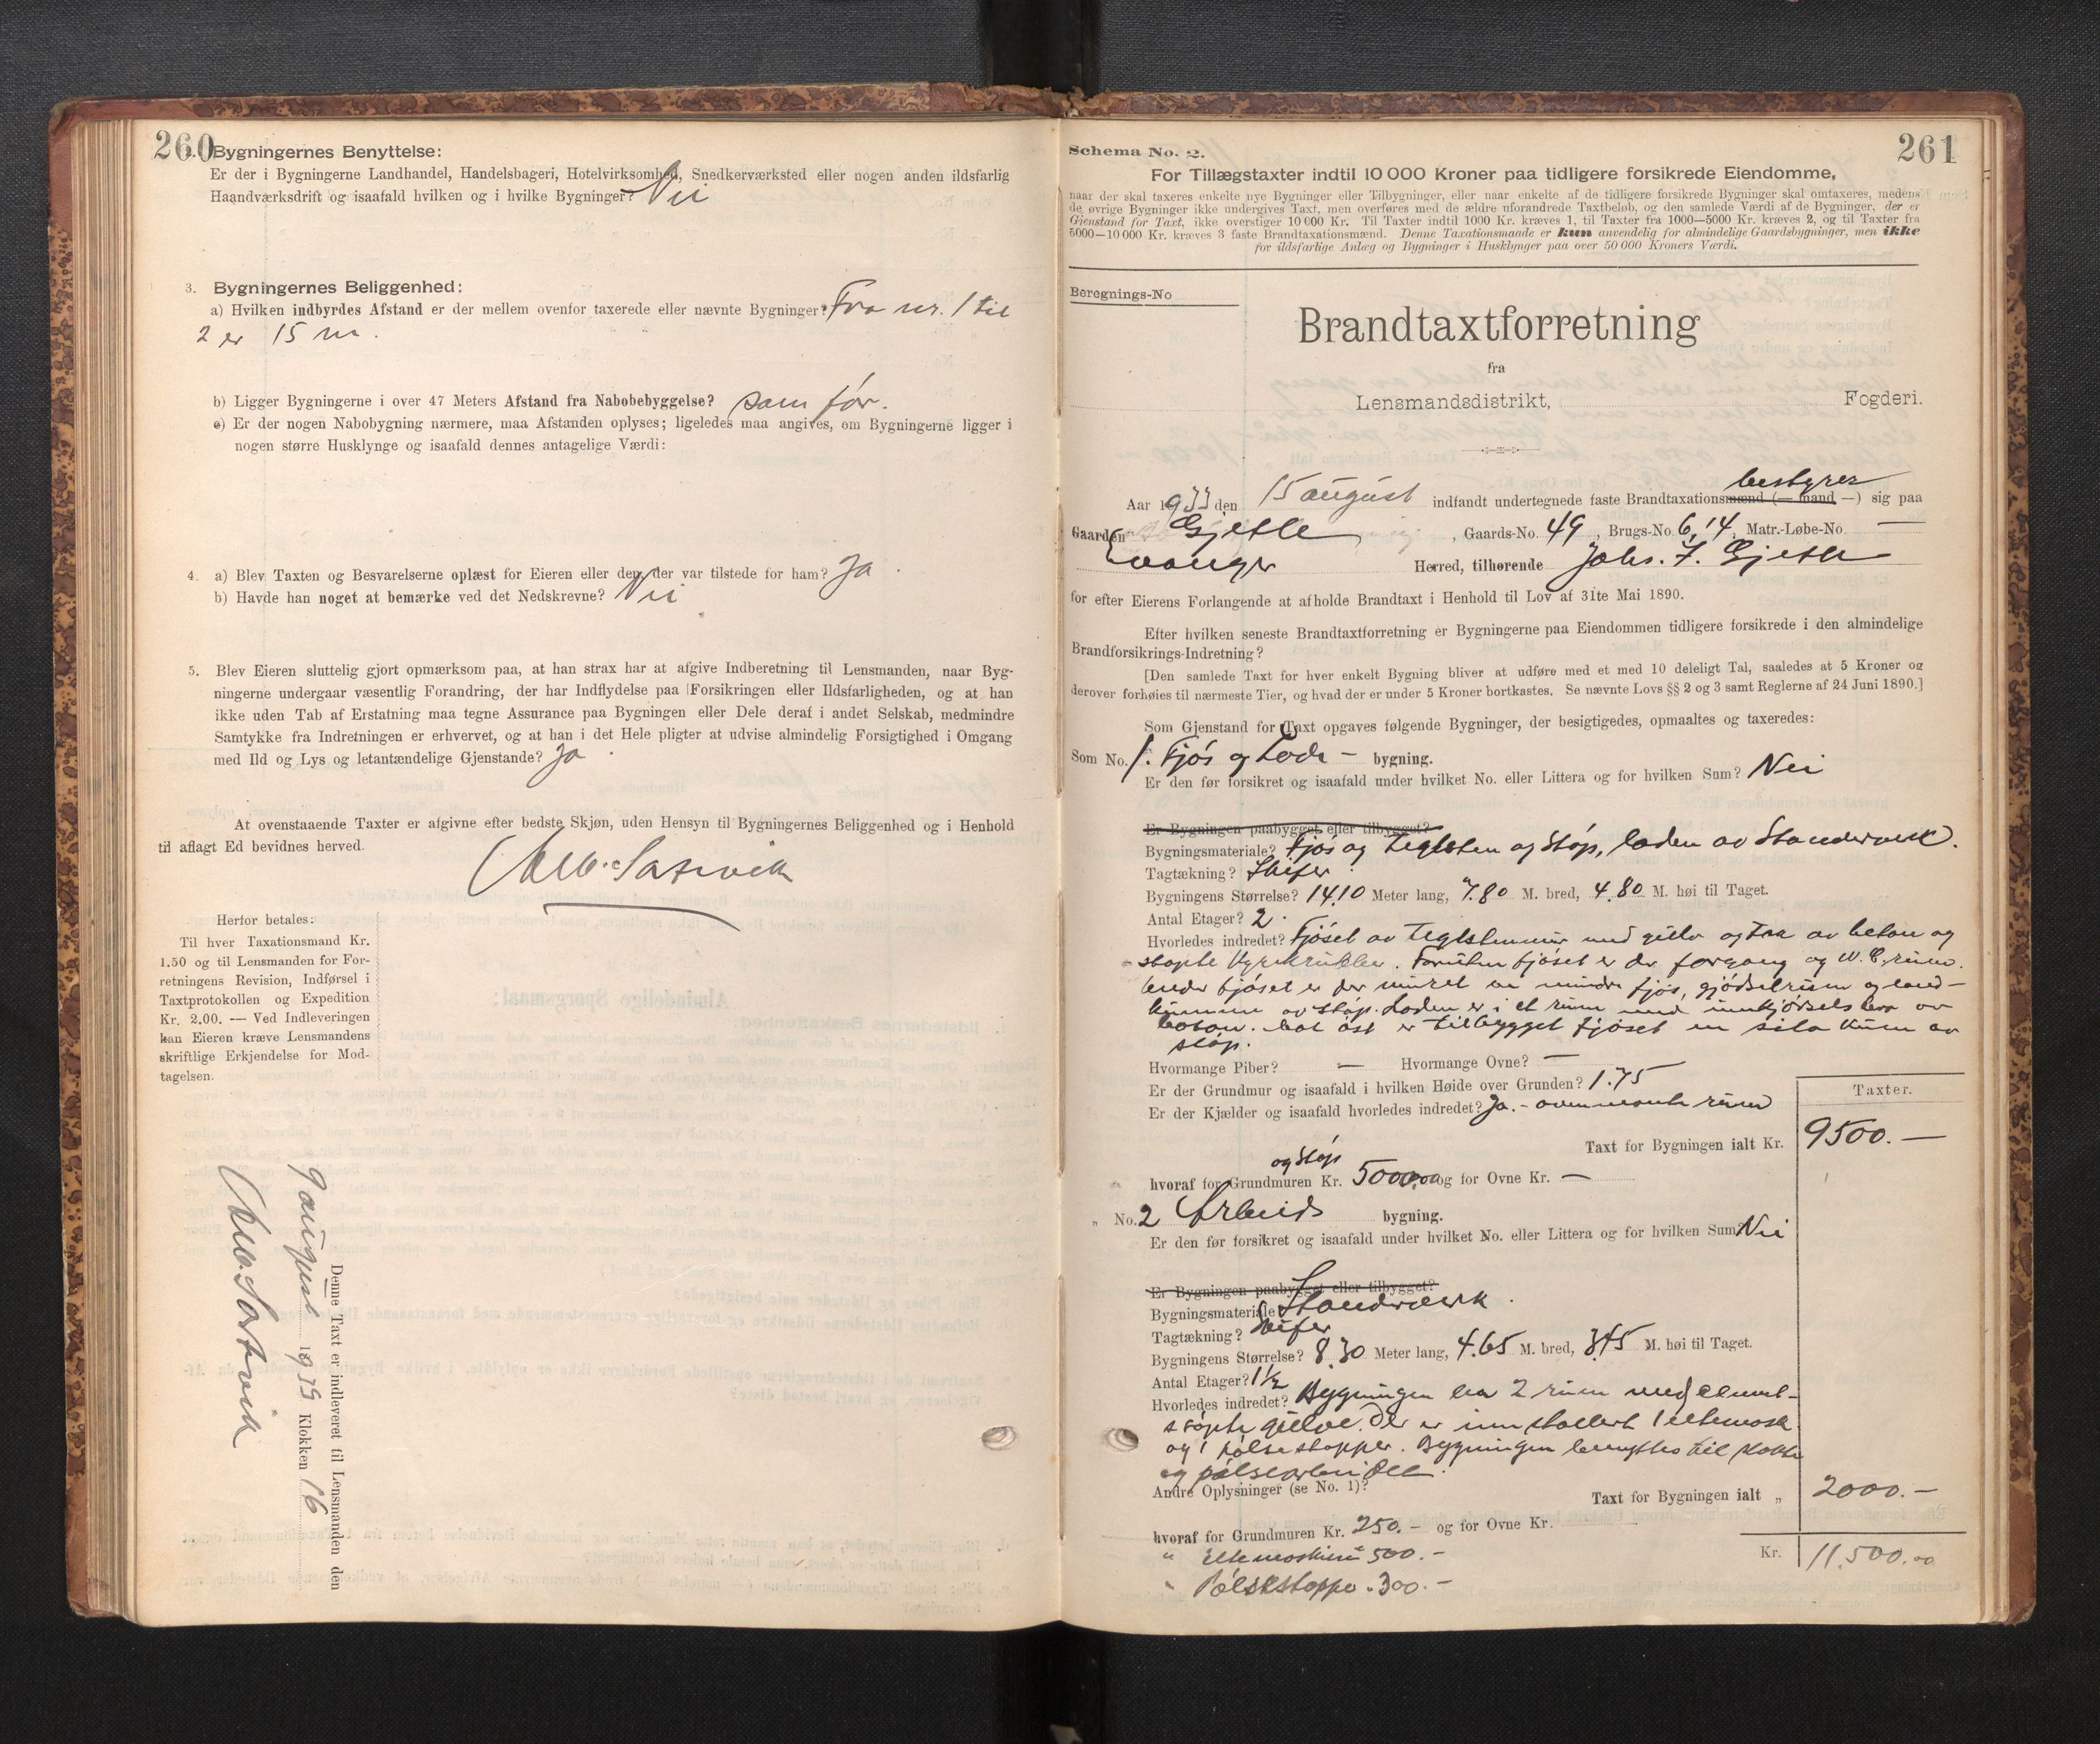 260
Bygningernes Benyttelse:
Er der i Bygningerne Landhandel, Handelsbageri, Hotelvirksomhed, Snedkerværksted eller nogen anden ildsfarlig
Haandværksdrift og isaafald hvilken og i hvilke Bygninger? Nei
3. Bygningernes Beliggenhed:
a) Hvilken indbyrdes Afstand er der mellem ovenfor taxerede eller nævnte Bygninger? Fra nr. 1 til
2 er 15 m.
b) Ligger Bygningerne i over 47 Meters Afstand fra Nabobebyggelse? som før.
c) Er der nogen Nabobygning nærmere, maa Afstanden oplyses; ligeledes maa angives, om Bygningerne ligger i
nogen større Husklynge og isaafald dennes antagelige Værdi:
4. a) Blev Taxten og Besvarelserne oplæst for Eieren eller den, der var tilstede for ham? Ja.
b) Havde han noget at bemærke ved det Nedskrevne? Nei
5. Blev Eieren sluttelig gjort opmærksom paa, at han strax har at afgive Indberetning til Lensmanden, naar Byg-
ningerne undergaar væsentlig Forandring, der har Indflydelse paa Forsikringen eller Ildsfarligheden, og at han
ikke uden Tab af Erstatning maa tegne Assurance paa Bygningen eller Dele deraf i andet Selskab, medmindre
Samtykke fra Indretningen er erhvervet, og at han i det Hele pligter at udvise almindelig Forsigtighed i Omgang
med Ild og Lys og letantændelige Gjenstande? Ja.
At ovenstaaende Taxter er afgivne efter bedste Skjøn, uden Hensyn til Bygningernes Beliggenhed og i Henhold
til aflagt Ed bevidnes herved.
Herfor betales:
Til hver Taxationsmand Kr.
1.50 og til Lensmanden for For-
retningens Revision, Indførsel i
Taxtprotokollen og Expedition
Kr. 2.00. — Ved Indleveringen
kan Eieren kræve Lensmandens
skriftlige Erkjendelse for Mod-
tagelsen.
Denne Taxt er indleveret til Lensmanden den
9 august 1939 Klokken 16
261
Schema No. 2.
For Tillægstaxter indtil 10 000 Kroner paa tidligere forsikrede Eiendomme,
naar der skal taxeres enkelte nye Bygninger eller Tilbygninger, eller naar enkelte af de tidligere forsikrede Bygninger skal omtaxeres, medens
de øvrige Bygninger ikke undergives Taxt, men overføres med de ældre uforandrede Taxtbeløb, og den samlede Værdi af de Bygninger, der er
Gjenstand for Taxt, ikke overstiger 10 000 Kr. Til Taxter indtil 1000 Kr. kræves 1, til Taxter fra 1000—5000 Kr. kræves 2, og til Taxter fra
5000—10 000 Kr. kræves 3 faste Brandtaxationsmænd. Denne Taxationsmaade er kun anvendelig for almindelige Gaardsbygninger, men ikke
for ildsfarlige Anlæg og Bygninger i Husklynger paa over 50 000 Kroners Værdi.
Beregnings-No
Brandtaxtforretning
fra
Lensmandsdistrikt, Fogderi.
bestyrer
Aar 1933 den 15 august indfandt undertegnede faste Brandtaxationsmænd (— mand —) sig paa
Gaarden Gjelle, Gaards-No. 49, Brugs-No. 6, 14, Matr.-Løbe-No —
Evanger Herred, tilhørende Johs. I. Gjelle
for efter Eierens Forlangende at afholde Brandtaxt i Henhold til Lov af 31te Mai 1890.
Efter hvilken seneste Brandtaxtforretning er Bygningerne paa Eiendommen tidligere forsikrede i den almindelige
Brandforsikrings-Indretning?
[Den samlede Taxt for hver enkelt Bygning bliver at udføre med et med 10 deleligt Tal, saaledes at 5 Kroner og
derover forhøies til nærmeste Tier, og hvad der er under 5 Kroner bortkastes. Se nævnte Lovs §§ 2 og 3 samt Reglerne af 24 Juni 1890.]
Som Gjenstand for Taxt opgaves følgende Bygninger, der besigtigedes, opmaaltes og taxeredes:
Som No. 1. Fjøs og Løde - bygning.
Er den før forsikret og isaafald under hvilket No. eller Littera og for hvilken Sum? Nei
Er Bygningen paabygget eller tilbygget?
Bygningsmateriale? Fjøs og teglsten og støp, løden av Standerverk.
Tagtækning? Skifer.
Bygningens Størrelse? 14.10 Meter lang, 7.80 M. bred, 4.80 M. høi til Taget.
Antal Etager? 2.
Hvorledes indredet? Fjøset av teglstenmur med gulv og tak av beton og
støpte kyrekrubber. Foruten fjøset er der forgang og W.C. rum.
Under fjøset er der muret en mindre fjøs, gjødselrum og land-
kumme av støp. Løden er i et rum med innkjørselsbro av
beton. Mot øst er tilbygget fjøset en silo kum av
støp.
Hvormange Piber? — Hvormange Ovne? —
Er der Grundmur og isaafald i hvilken Høide over Grunden? 1.75
Er der Kjælder og isaafald hvorledes indredet? Ja. - ovennævnte rum
Taxter.
Taxt for Bygningen ialt Kr. 9500.—
og støp
hvoraf for Grundmuren Kr. 5000.00 og for Ovne Kr. —
„ No. 2 Arbeids bygning.
Er den før forsikret og isaafald under hvilket No. eller Littera og for hvilken Sum? Nei
Er Bygningen paabygget eller tilbygget?
Bygningsmateriale Standerverk.
Tagtækning? Skifer
Bygningens Størrelse? 8.30 Meter lang, 4.65 M. bred, 3.45 M. høi til Taget.
Antal Etager? 1 ½
Hvorledes indredet? Bygningen har 2 rum med cement-
støpte gulve. Der er innstallert 1 eltemask.
og 1 pølsestopper. Bygningen benyttes til slakte
og pølsearbeide.
Andre Oplysninger (se No. 1)?
Taxt for Bygningen ialt „ 2000.—
hvoraf for Grundmuren Kr. 250.— og for Ovne Kr.
„ Eltemaskin „ 500.—
„ Pølsestoppe „ 300.—
Kr. 11.500.00